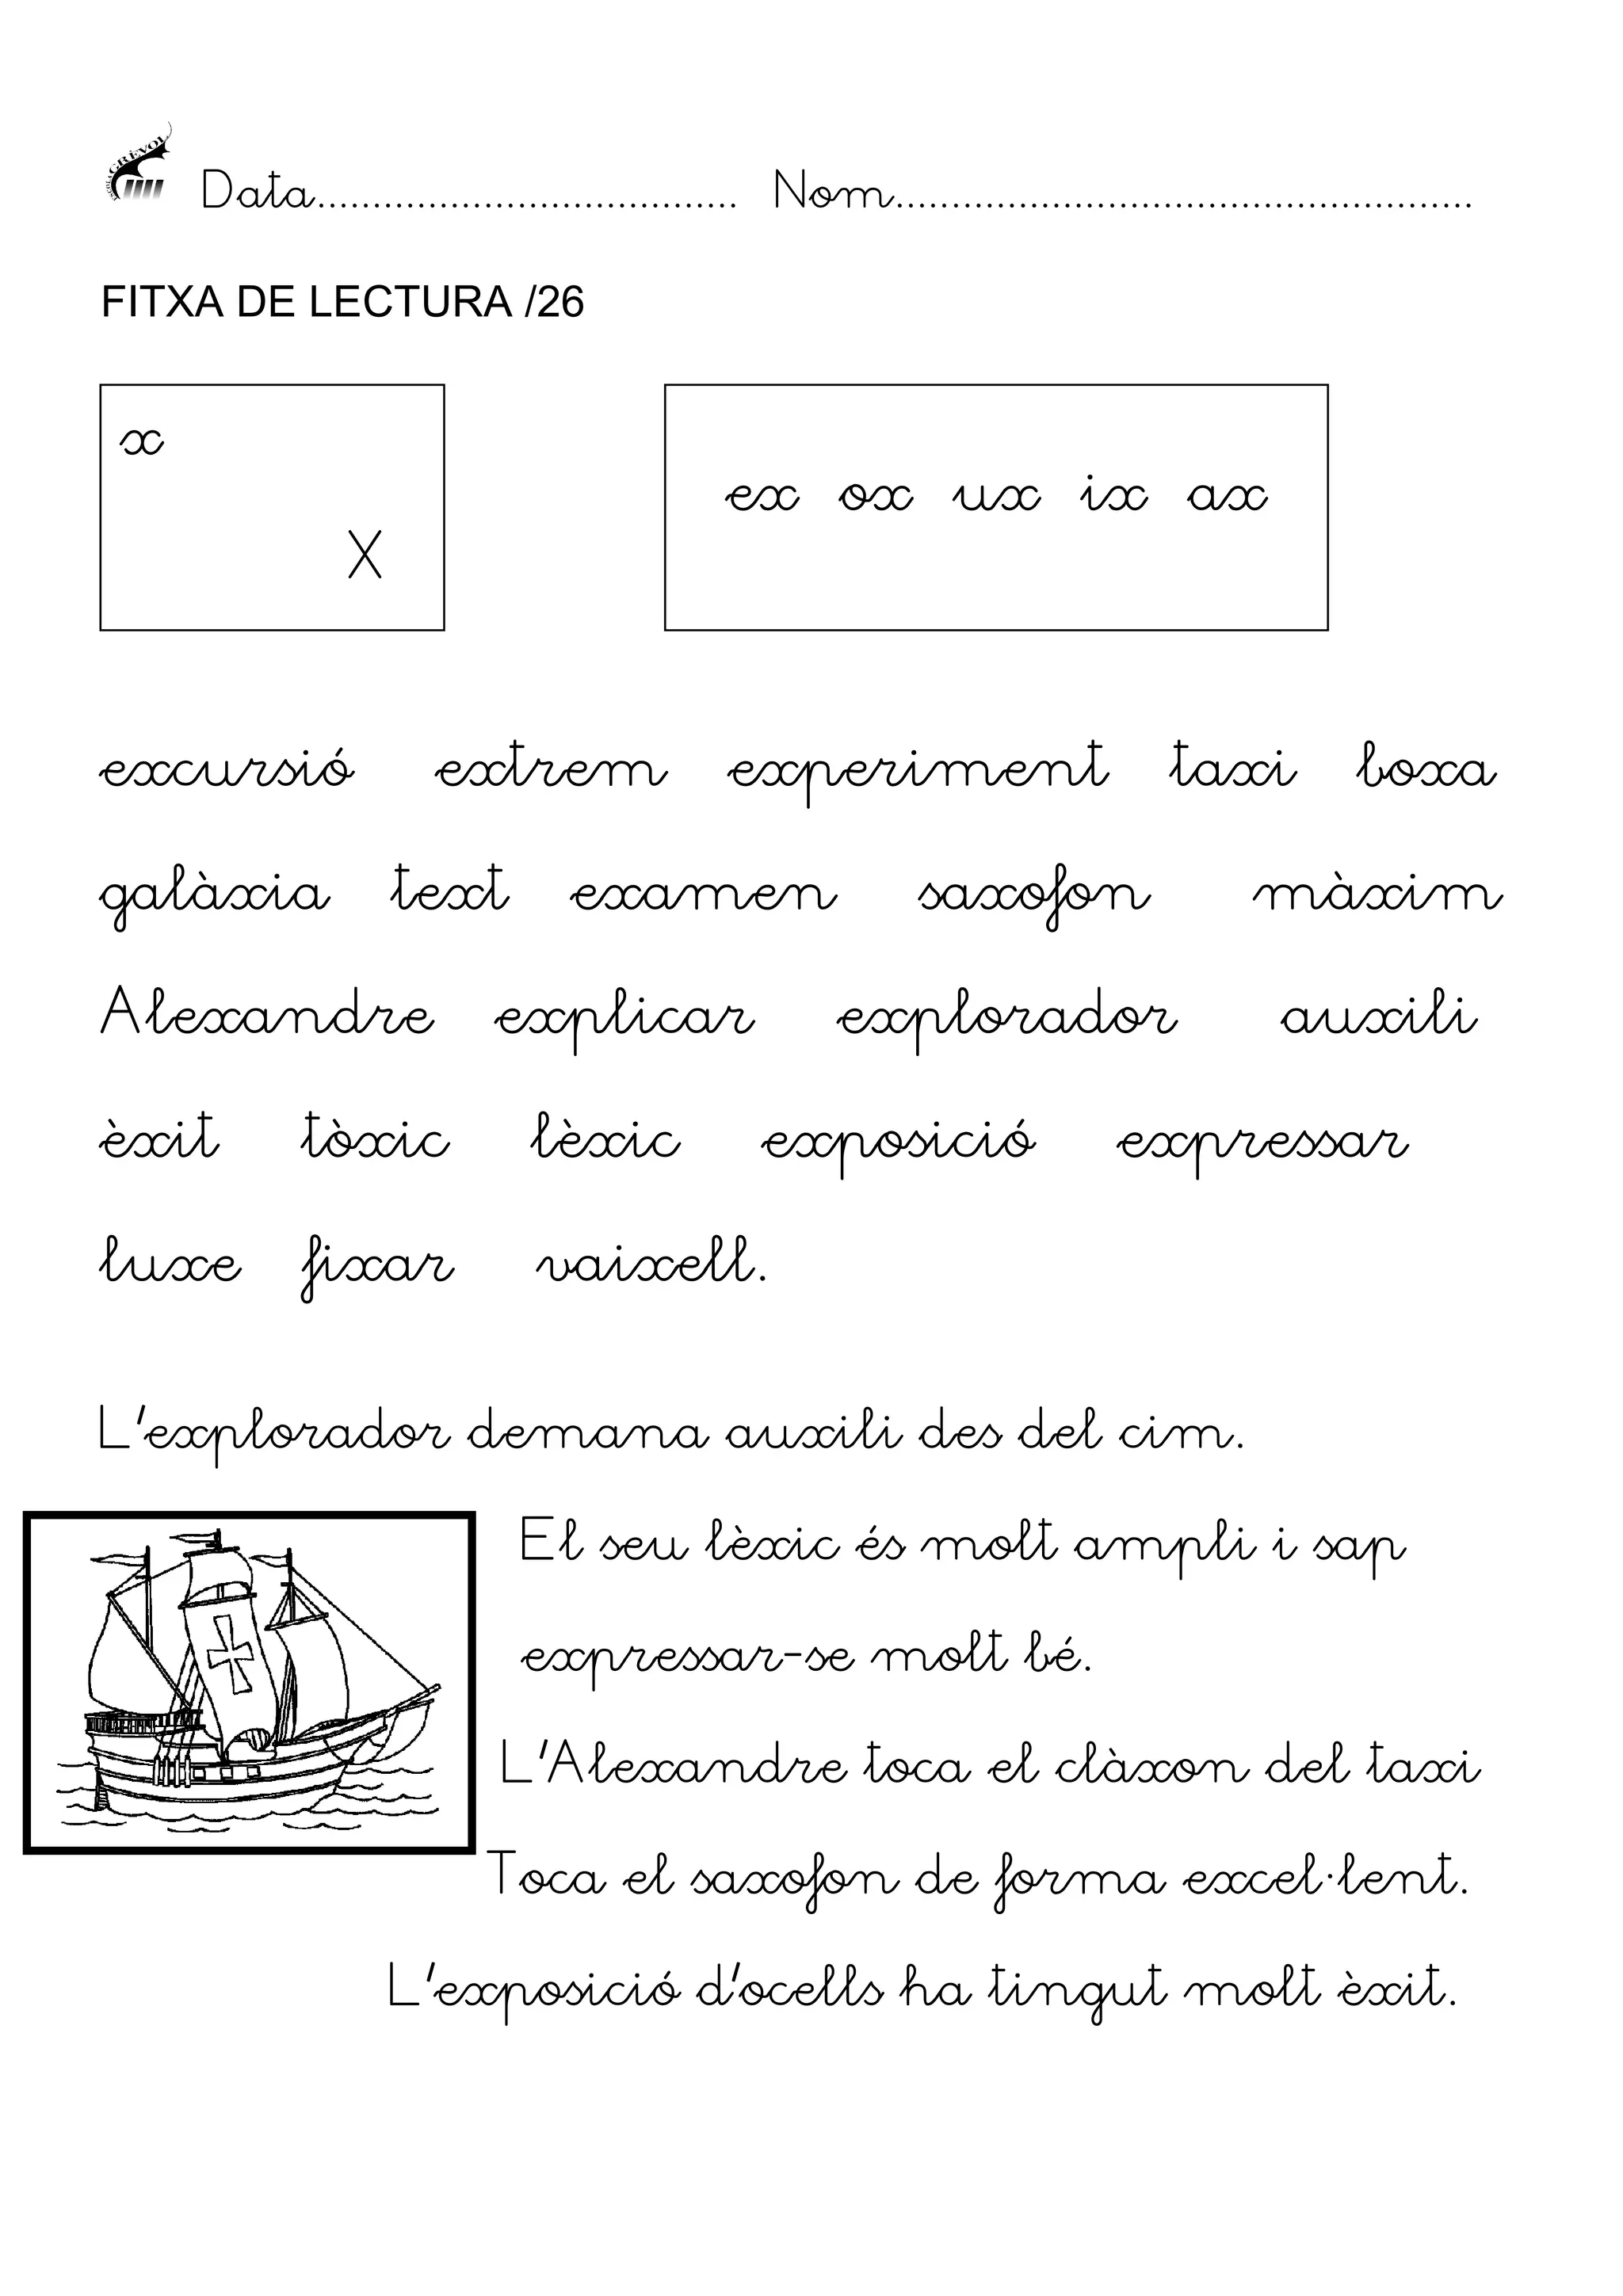 ESCOLA GRÈVOL
Data...................................... Nom....................................................
FITXA DE LECTURA /26
x
X
ex ox ux ix ax
excursió extrem experiment taxi boxa
galàxia text examen saxofon màxim
Alexandre explicar explorador auxili
èxit tòxic lèxic exposició expressar
luxe fixar vaixell.
L'explorador demana auxili des del cim.
El seu lèxic és molt ampli i sap
expressar-se molt bé.
L'Alexandre toca el clàxon del taxi
Toca el saxofon de forma excel·lent.
L'exposició d'ocells ha tingut molt èxit.